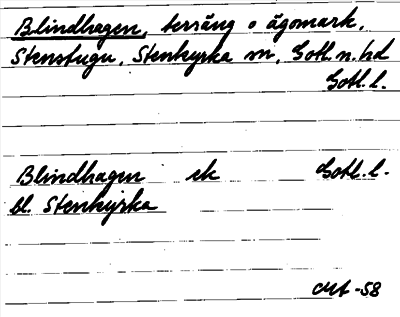 Blindhagen, terräng o ägomark,
Stenstugu, Stenkyrka sn, Gotl. n. hd
Gotl. l.
Blindhagen ek Gotl. l.
bl. Stenkyrka
-58